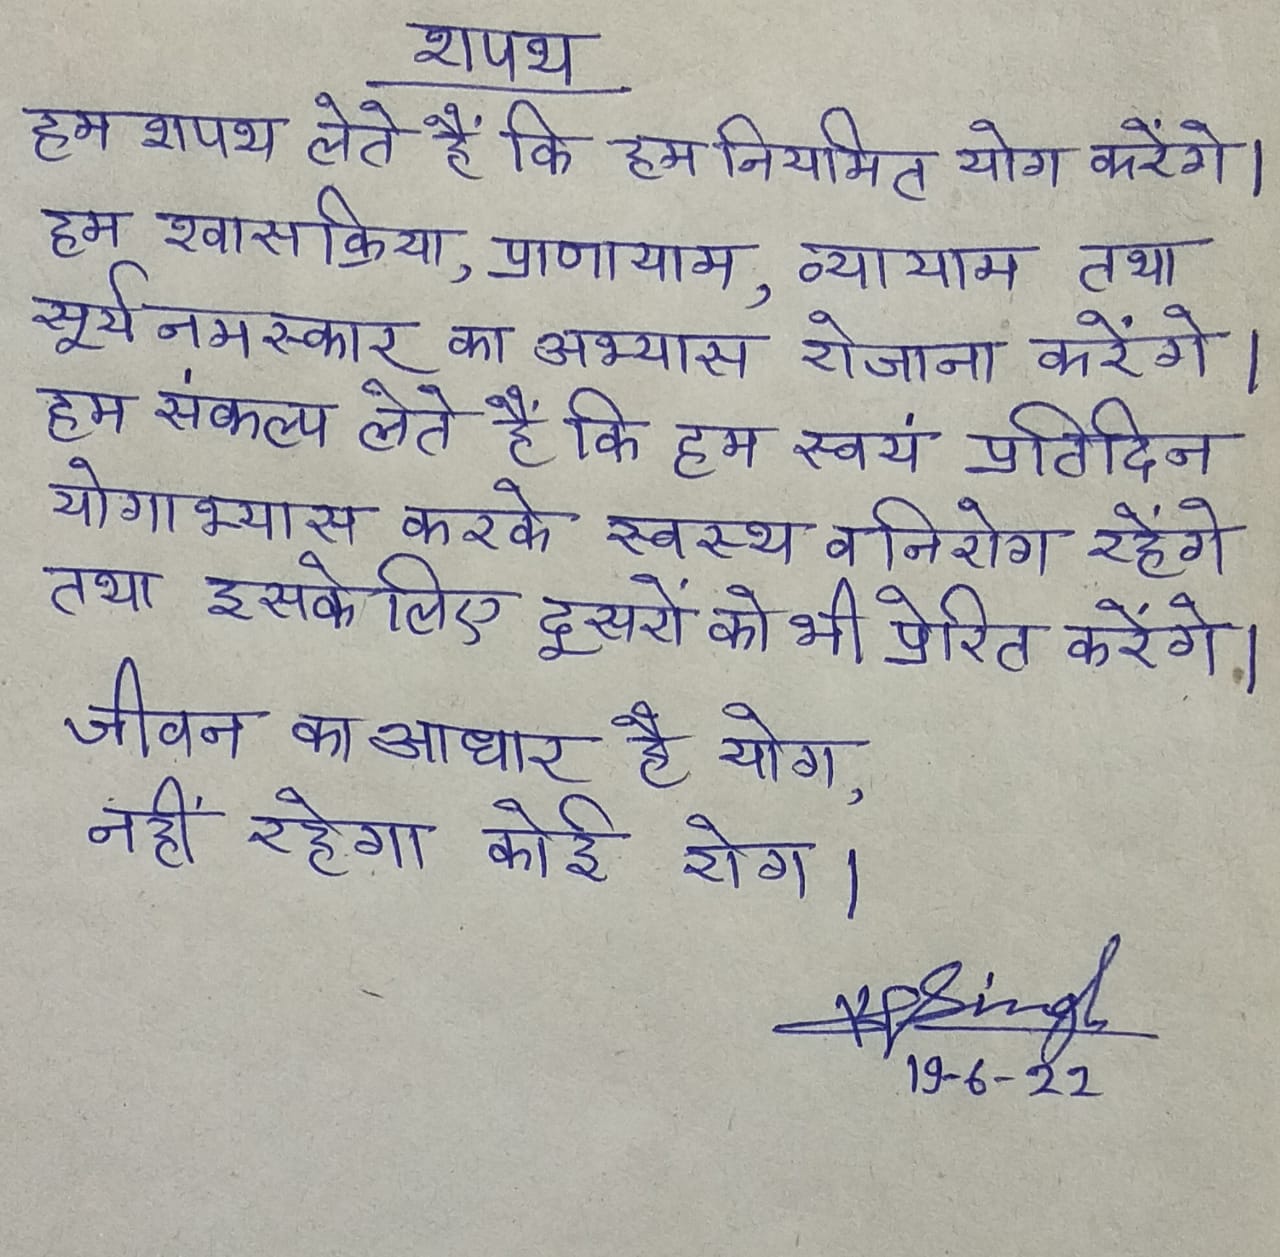 शपथ
हम शपथ लेते हैं कि हम नियमित योग करेंगे।
हम श्वास क्रिया, प्राणायाम, व्यायाम तथा
सूर्य नमस्कार का अभ्यास रोजाना करेंगे।
हम संकल्प लेते हैं कि हम स्वयं प्रतिदिन
योगाभ्यास करके स्वस्थ व निरोग रहेंगे
तथा इसके लिए दूसरों को भी प्रेरित करेंगे।
जीवन का आधार है योग,
नहीं रहेगा कोई रोग।
Singh
19-6-22